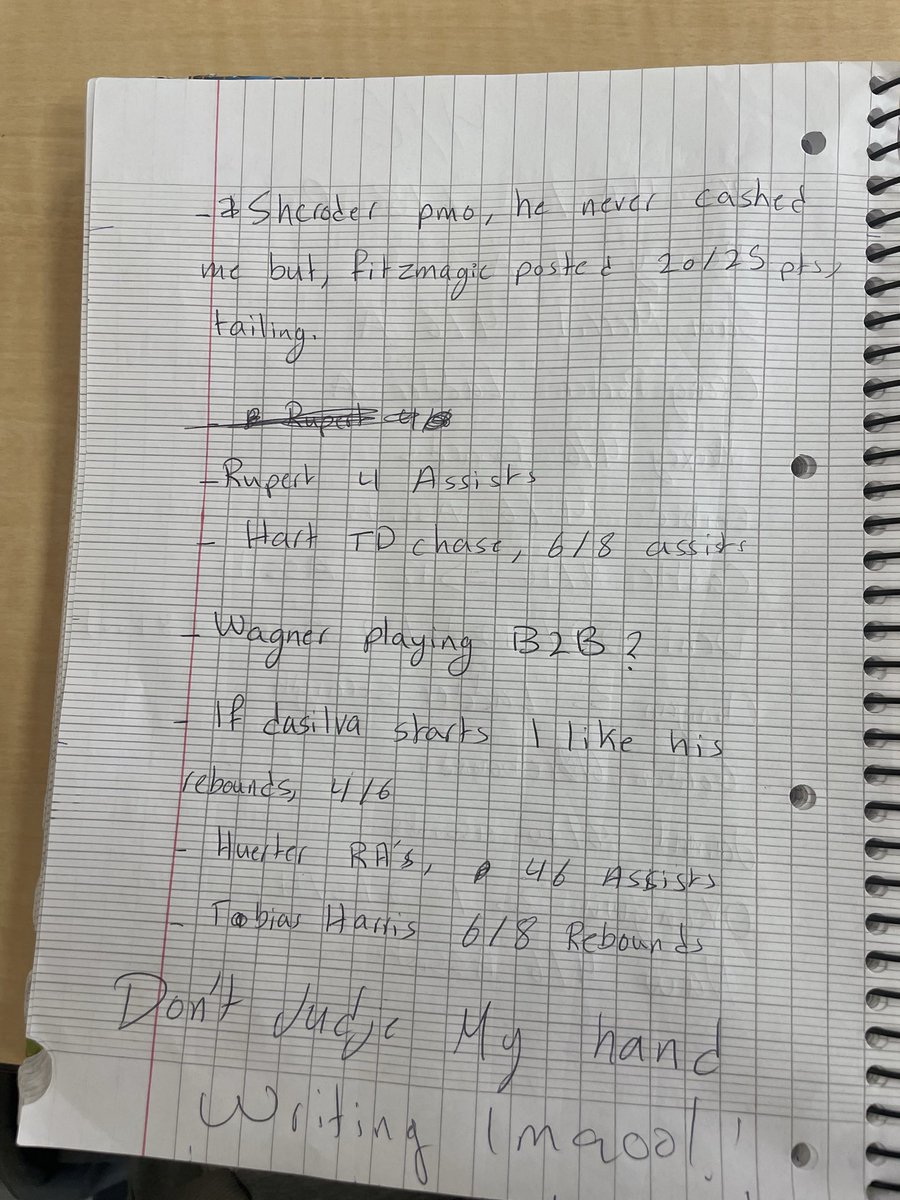 - Shcroder pmo, he never cashed
me but, fitzmagic posted 20/25 pts,
tailing.
- Rupert 4
- Rupert 4 Assists
- Hart TD chase, 6/8 assits
- Wagner playing B2B?
- If dasilva starts I like his
rebounds, 4/6
- Huerter RA's, 46 Assists
- Tobias Harris 6/8 Rebounds
Don't Judge My hand
Writing lmaool!